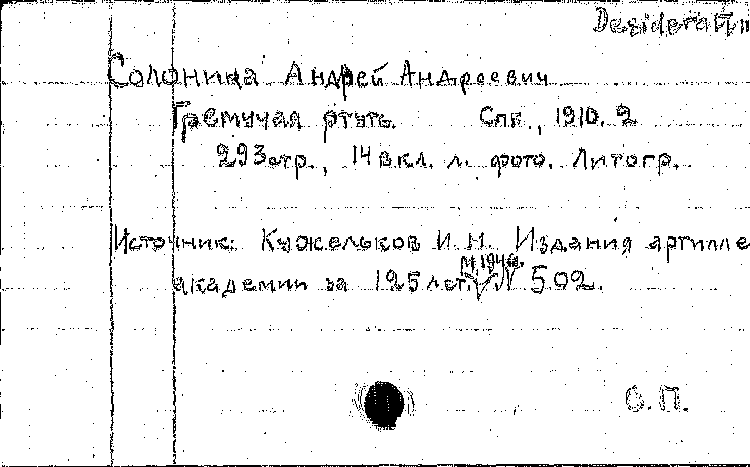 Desiderat
Солонина Андрей Андреевич
Гремучая ртуть. Спб., 1910. 2
293 стр., 14 вкл. л. фото. Литогр.
Источник: Кужельков И. Н. Издания артилле
М. 1946.
академии за 125 лет. № 502.
О. П.